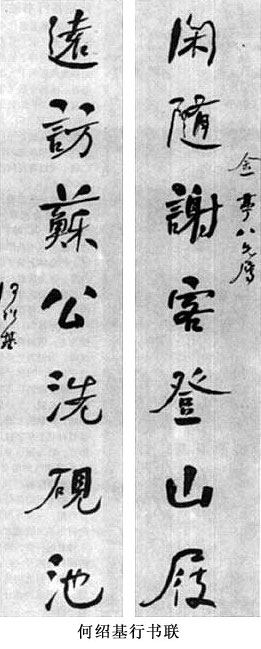 閑隨謝客登山屐
金亭八兄屬
遠訪蘇公洗硯池
何紹基
何绍基行书联